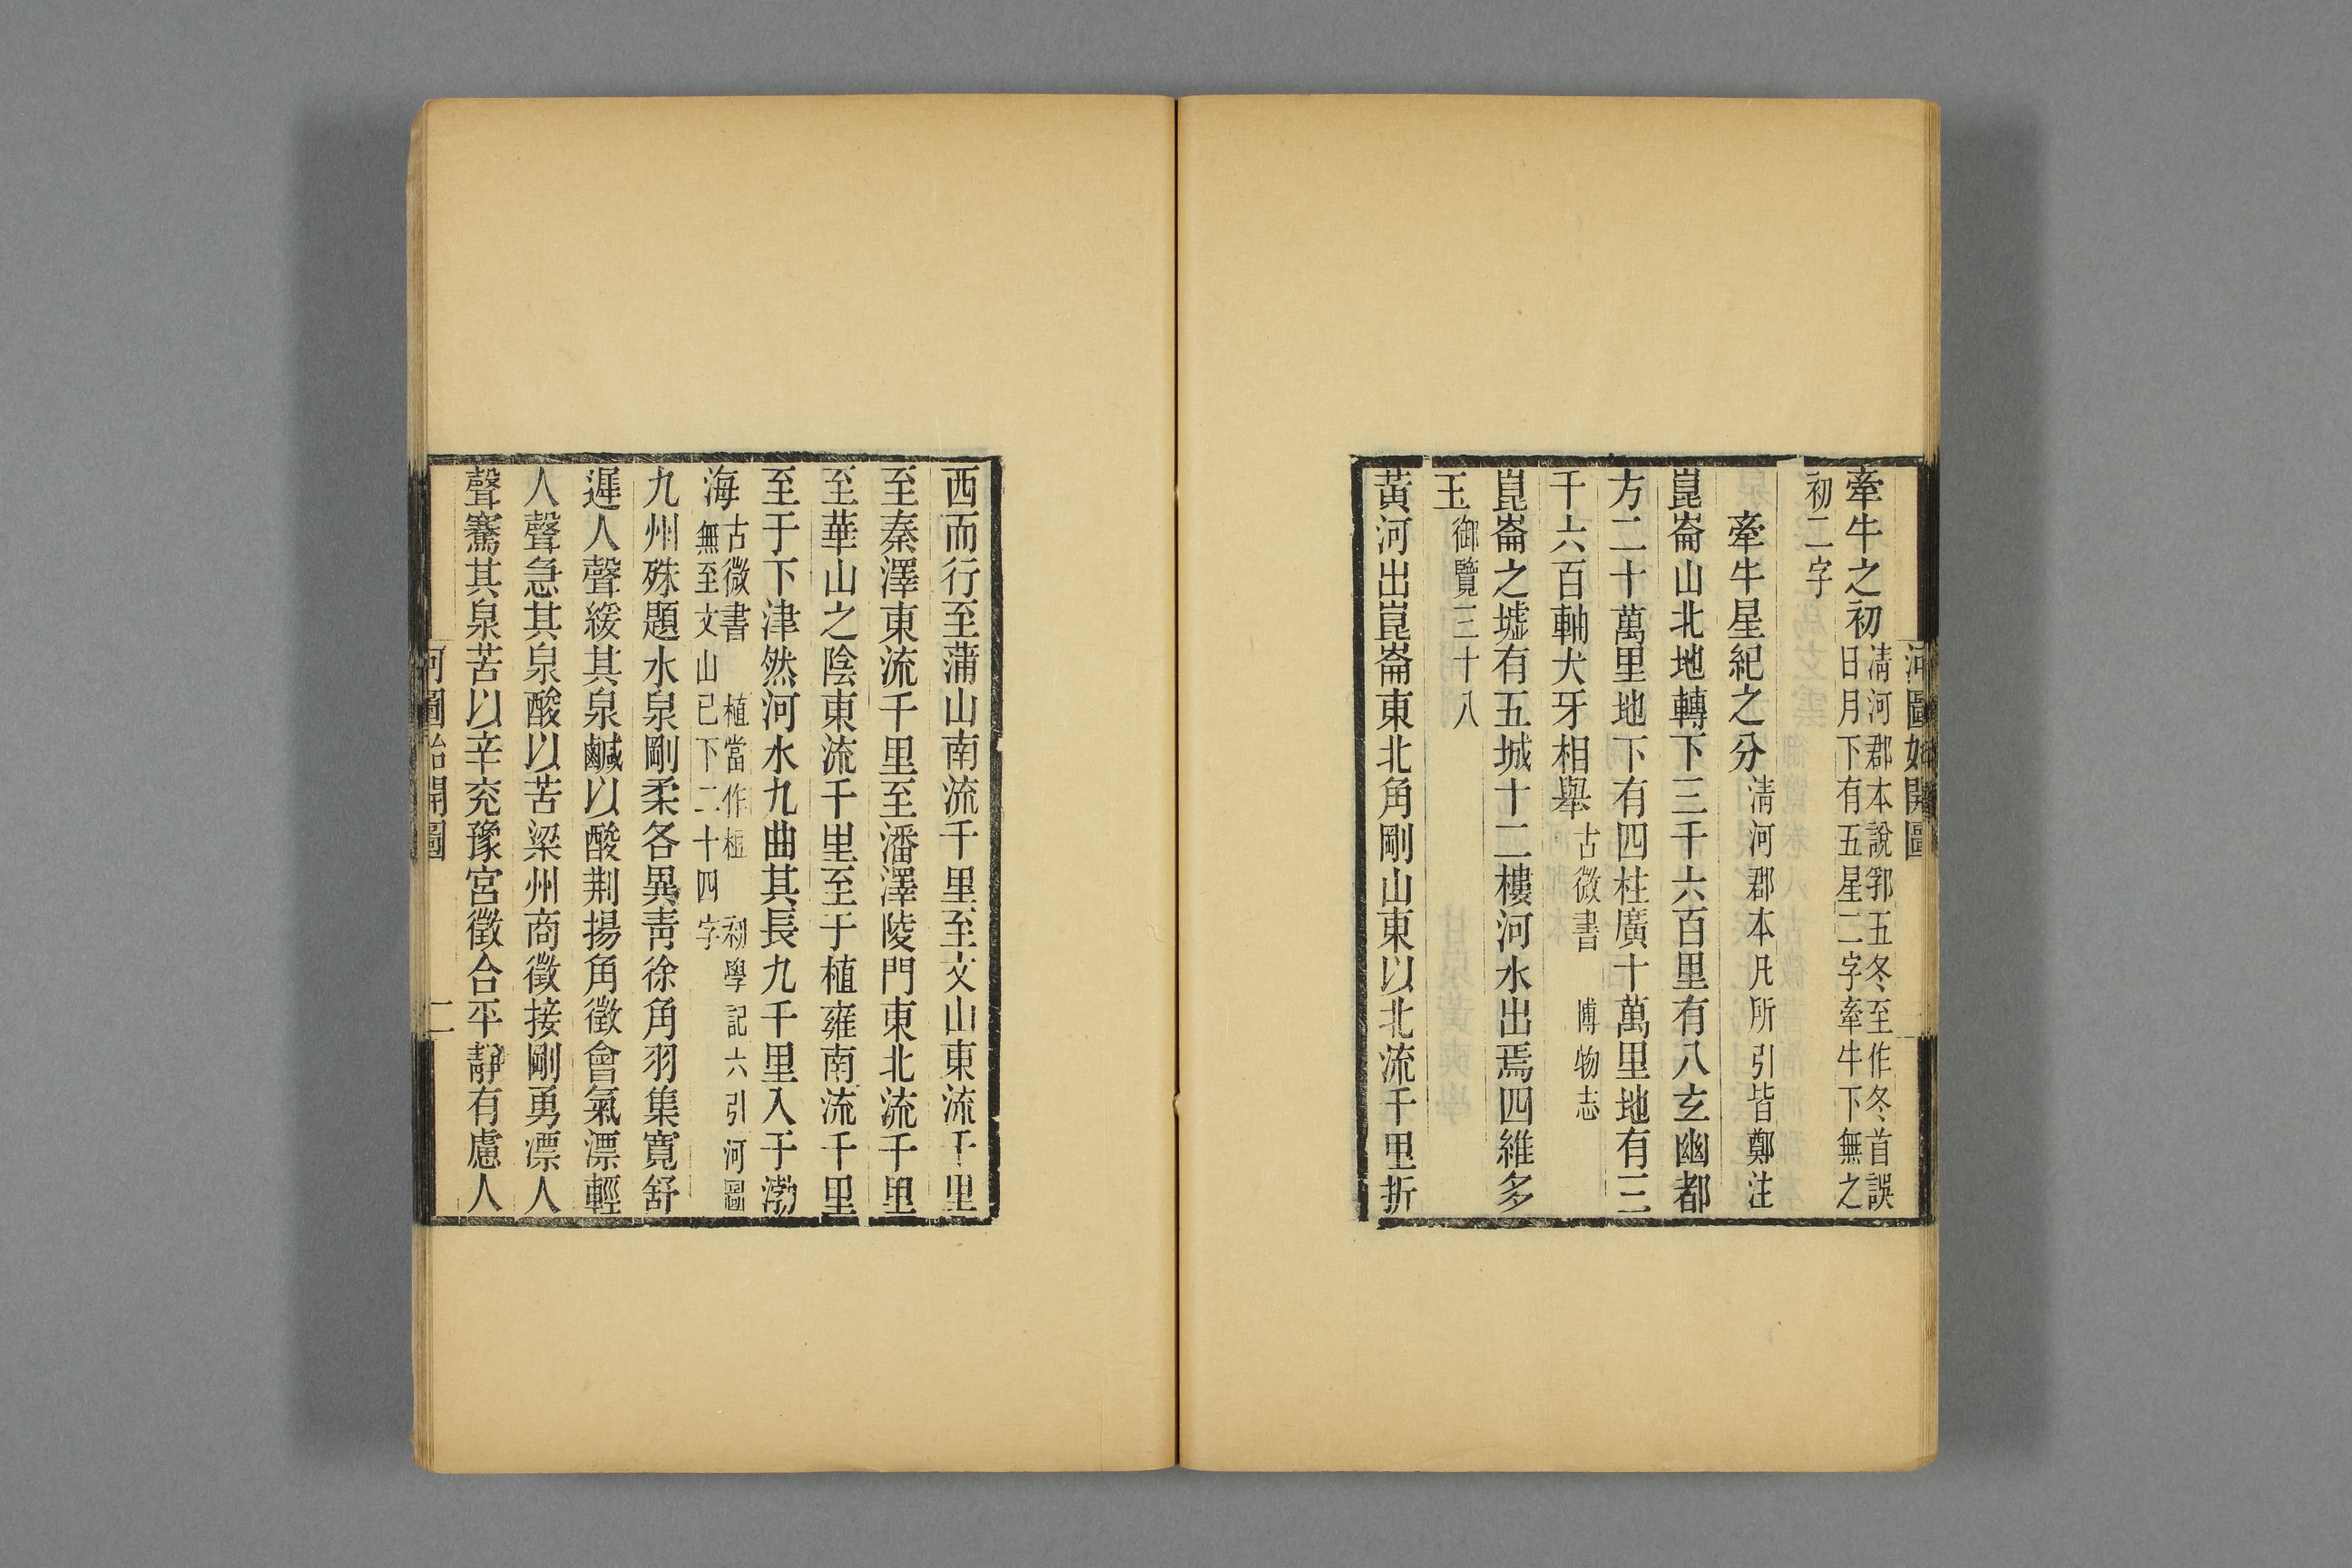 河圖始開圖
牽牛之初淸河郡本說郛五冬至作冬首誤
日月下有五星二字牽牛下無之
初二字
牽牛星紀之分淸河郡本凡所引皆鄭注
崑崙山北地轉下三千六百里有八玄幽都
方二十萬里地下有四柱廣十萬里地有三
千六百軸犬牙相舉古微書 博物志
崑崙之墟有五城十二樓河水出焉四維多
玉御覽三十八
黃河出崑崙東北角剛山東以北流千里折
西而行至蒲山南流千里至文山東流千里
至秦澤東流千里至潘澤陵門東北流千里
至華山之陰東流千里至于植雍南流千里
至于下津然河水九曲其長九千里入于渤
海古微書 植當作桓 初學記六引河圖
無至文山已下二十四字
九州殊題水泉剛柔各異靑徐角羽集寬舒
遲人聲緩其泉鹹以酸荆揚角徵會氣漂輕
人聲急其泉酸以苦梁州商徵接剛勇漂人
聲騫其泉苦以辛兖豫宮徵合平靜有慮人
河圖始開圖
二